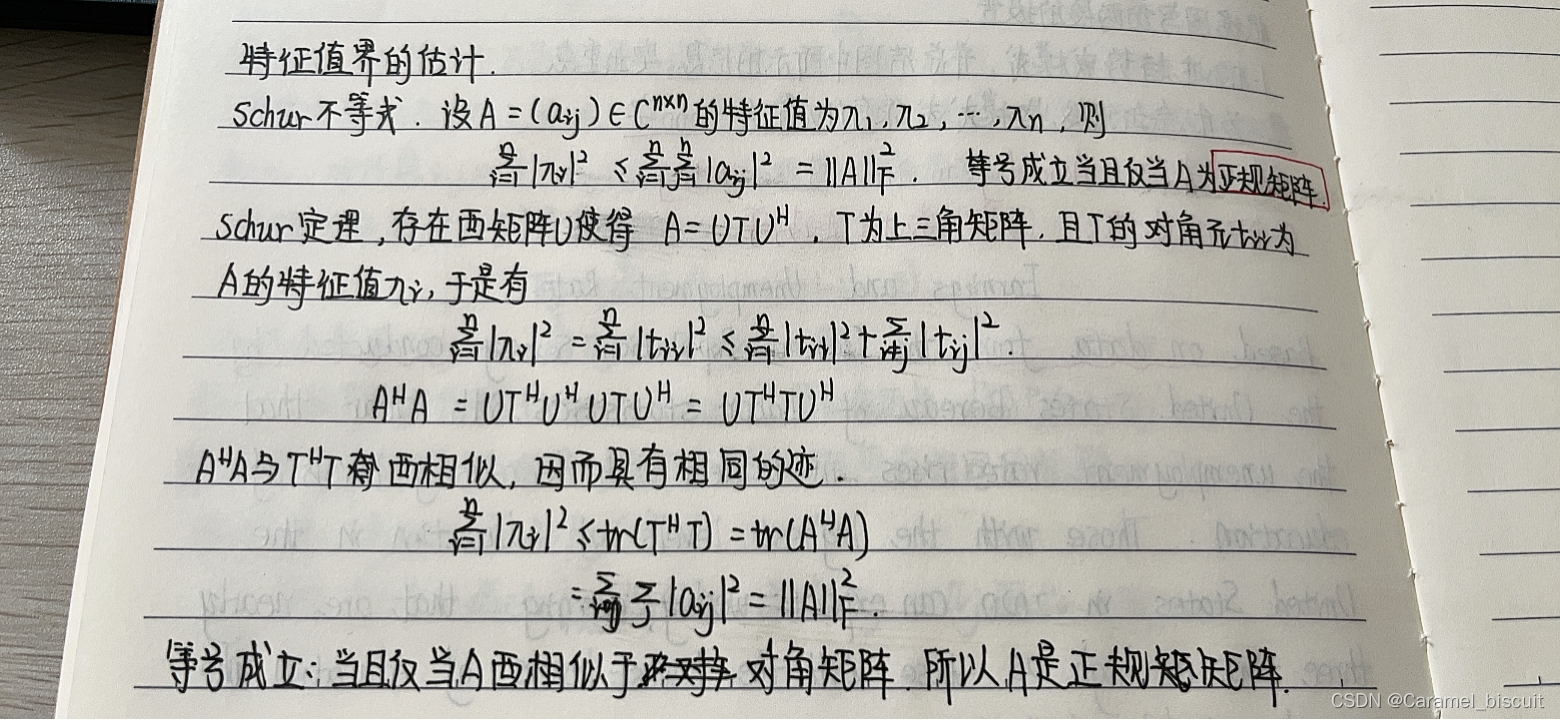 特征值界的估计.
Schur不等式. 设A=(aij)∈C^{n×n}的特征值为λ1,λ2,…,λn,则
∑_{i=1}^{n}|λi|^2 ≤ ∑_{i=1}^{n}∑_{j=1}^{n}|aij|^2 = ||A||_F^2. 等号成立当且仅当A为正规矩阵.
Schur定理,存在酉矩阵U使得 A=UTU^H. T为上三角矩阵.且T的对角元tii为
A的特征值λi,于是有
∑_{i=1}^{n}|λi|^2 = ∑_{i=1}^{n}|tii|^2 ≤ ∑_{i=1}^{n}|tii|^2+∑_{i≠j}|tij|^2.
A^HA = UT^HU^HUTU^H = UT^HTU^H
A^HA与T^HT 酉相似,因而具有相同的迹.
∑_{i=1}^{n}|λi|^2 ≤ tr(T^HT) = tr(A^HA)
= ∑_i ∑_j |aij|^2 = ||A||_F^2.
等号成立:当且仅当A酉相似于 对角矩阵.所以A是正规矩阵.
CSDN @Caramel_biscuit